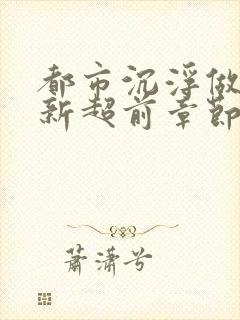 都市沉浮做
新超前章節
蕭瀟兮